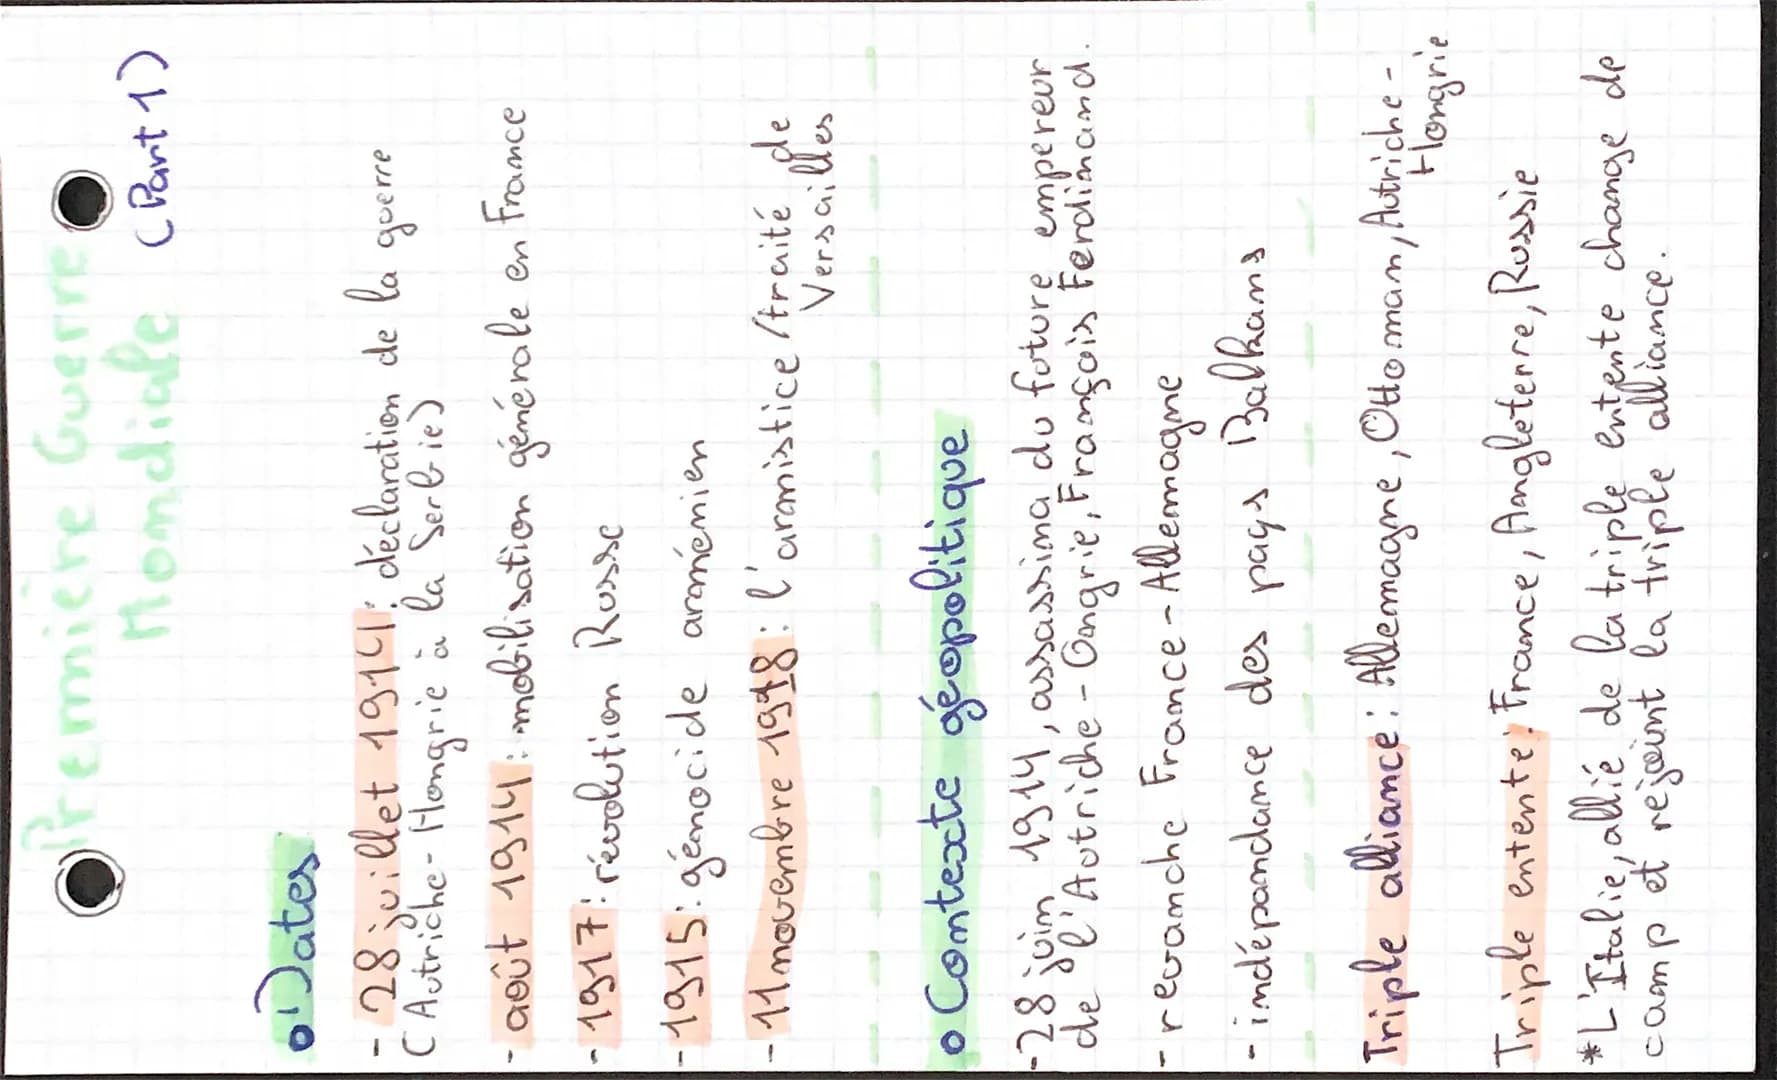 Première Guerre
Mondiale (Part 1)
o Dates
- 28 juillet 1914 : déclaration de la guerre
(Autriche-Hongrie à la Serbie)
- août 1914 : mobilisation générale en France
- 1917 : révolution Russe
- 1915 : génocide arménien
- 11 novembre 1918 : l'armistice/traité de
Versailles
o Contexte géopolitique
- 28 juin 1914, assassina du future empereur
de l'Autriche-Ongrie, François Ferdinand.
- revanche France-Allemagne
- indépendance des pays Balkans
Triple alliance : Allemagne, Ottoman, Autriche-
Hongrie
Triple entente : France, Angleterre, Russie
* L'Italie, allié de la triple entente change de
camp et rejoint la triple alliance.